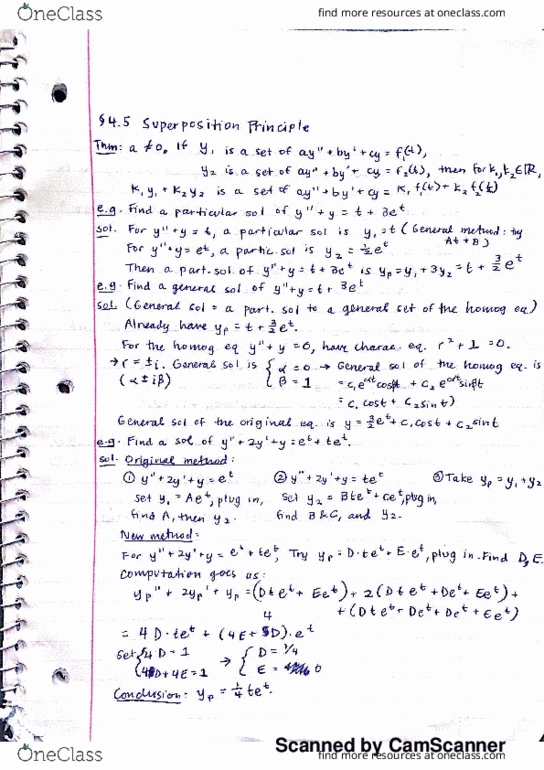 OneClass
find more resources at oneclass.com
§4.5 Superposition Principle
Thm: a≠0. If y₁ is a set of ay"+by'+cy=f₁(t),
y₂ is a set of ay"+by'+cy=f₂(t), then for k₁,k₂∈ℝ,
k₁y₁+k₂y₂ is a set of ay"+by'+cy=k₁f₁(t)+k₂f₂(t)
e.g. Find a particular sol of y"+y=t+3eᵗ
sol. For y"+y=t, a particular sol is y₁=t (General method: try
At+B)
For y"+y=eᵗ, a partic. sol is y₂=½eᵗ
Then a part. sol. of y"+y=t+3eᵗ is yₚ=y₁+3y₂=t+3/2eᵗ
e.g. Find a general sol of y"+y=t+3eᵗ
sol. (General sol = a part. sol to a general set of the homog eq)
Already have yₚ=t+3/2eᵗ.
For the homog eq y"+y=0, have charac eq. r²+1=0.
→r=±i. General sol is { α=0 → General sol of the homog eq. is
(α±iβ) β=1 =c₁e^αt cosβt + c₂e^αt sinβt
=c₁cost+c₂sint)
General sol of the original eq. is y=3/2eᵗ+c₁cost+c₂sint
e.g. Find a sol of y"+2y'+y=eᵗ+teᵗ.
sol. Original method:
① y"+2y'+y=eᵗ ② y"+2y'+y=teᵗ ③ Take yₚ=y₁+y₂
set y₁=Aeᵗ, plug in, Set y₂=Bteᵗ+ceᵗ, plug in,
find A, then y₂. find B&C, and y₂.
New method:
For y"+2y'+y=eᵗ+teᵗ, Try yₚ=D·teᵗ+E·eᵗ, plug in. Find D,E.
Computation goes as:
yₚ"+2yₚ'+yₚ=(Dteᵗ+Eeᵗ)+2(Dteᵗ+Deᵗ+Eeᵗ)+
+(Dteᵗ+Deᵗ+Deᵗ+Eeᵗ)
4
=4D·teᵗ+(4E+D)·eᵗ
Set {4D=1 → {D=1/4
{4D+4E=1 E=0
Conclusion: yₚ=¼teᵗ.
Scanned by CamScanner
OneClass
find more resources at oneclass.com